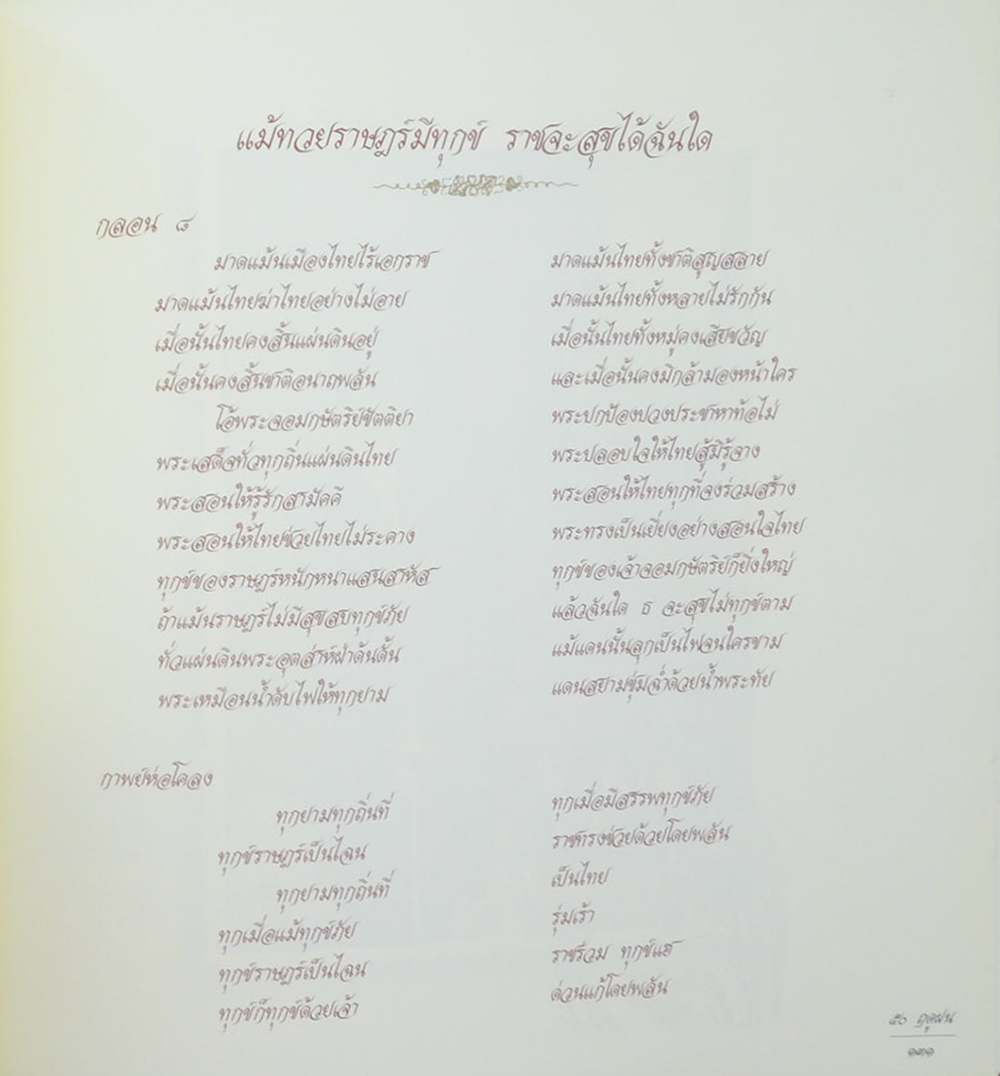 แม้ทวยราษฎร์มีทุกข์ ราชจะสุขได้ฉันใด
กลอน ๘
มาดแม้นเมืองไทยไร้เอกราช มาดแม้นไทยทั้งชาติสูญสลาย
มาดแม้นไทยฆ่าไทยอย่างไม่อาย มาดแม้นไทยทั้งหลายไม่รักกัน
เมื่อนั้นไทยคงสิ้นแผ่นดินอยู่ เมื่อนั้นไทยทั้งหมู่คงเสียขวัญ
เมื่อนั้นคงสิ้นชาติอนาถพลัน และเมื่อนั้นคงมิกล้ามองหน้าใคร
โอ้พระจอมกษัตริย์ขัตติยา พระปกป้องปวงประชาหาท้อไม่
พระเสด็จทั่วทุกถิ่นแผ่นดินไทย พระปลอบใจให้ไทยสู้มิรู้จาง
พระสอนให้รู้รักสามัคคี พระสอนให้ไทยทุกที่จงร่วมสร้าง
พระสอนให้ไทยช่วยไทยไม่ระคาง พระทรงเป็นเยี่ยงอย่างสอนใจไทย
ทุกข์ของราษฎร์หนักหนาแสนสาหัส ทุกข์ของเจ้าจอมกษัตริย์ก็ยิ่งใหญ่
ถ้าแม้นราษฎร์ไม่มีสุขสบทุกข์ภัย แล้วฉันใด ธ จะสุขไม่ทุกข์ตาม
ทั่วแผ่นดินพระอุตส่าห์ฝ่าดั้นดั้น แม้แดนนั้นลุกเป็นไฟจนใครขาม
พระเหมือนน้ำดับไฟให้ทุกยาม แดนสยามชุ่มฉ่ำด้วยน้ำพระทัย
กาพย์ห่อโคลง
ทุกยามทุกถิ่นที่ ทุกเมื่อมีสรรพทุกข์ภัย
ทุกข์ราษฎร์เป็นไฉน ราชทรงช่วยด้วยโดยพลัน
ทุกยามทุกถิ่นที่ เป็นไทย
ทุกเมื่อแม้ทุกข์ภัย รุ่มเร้า
ทุกข์ราษฎร์เป็นไฉน ราชร่วม ทุกข์แฮ
ทุกข์ก็ทุกข์ด้วยเจ้า ด่วนแก้โดยพลัน
๕๐ ฤดูฝน
๑๓๑